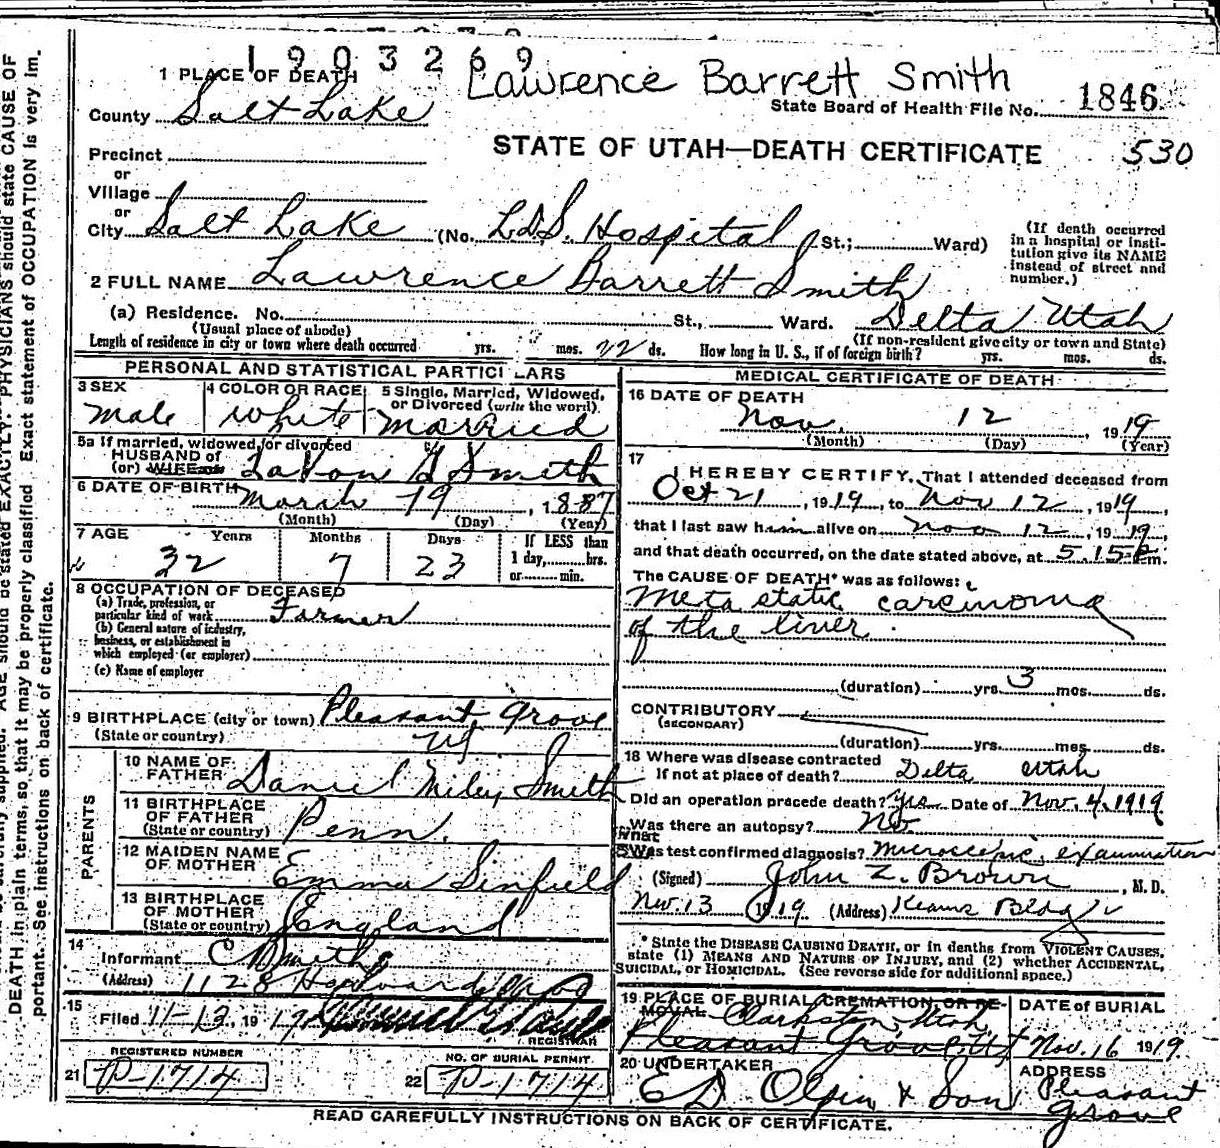 1903269
Lawrence Barrett Smith
1 PLACE OF DEATH
State Board of Health File No. 1846
County Salt Lake
STATE OF UTAH—DEATH CERTIFICATE 530
Precinct
or
Village
or
City Salt Lake (No. L.D.S. Hospital St.; Ward)
(If death occurred
in a hospital or insti-
tution give its NAME
instead of street and
number.)
2 FULL NAME Lawrence Barrett Smith
(a) Residence. No. St., Ward. Delta Utah
(Usual place of abode) (If non-resident give city or town and State)
Length of residence in city or town where death occurred yrs. mos. 22 ds. How long in U. S., if of foreign birth? yrs. mos. ds.
PERSONAL AND STATISTICAL PARTICULARS
3 SEX
male
4 COLOR OR RACE
white
5 Single, Married, Widowed,
or Divorced (write the word)
married
5a If married, widowed, or divorced
HUSBAND of
(or) WIFE of LaVon G Smith
6 DATE OF BIRTH March 19, 1887
(Month) (Day) (Year)
7 AGE Years Months Days If LESS than
32 7 23 1 day, hrs.
or min.
8 OCCUPATION OF DECEASED
(a) Trade, profession, or
particular kind of work Farmer
(b) General nature of industry,
business, or establishment in
which employed (or employer)
(c) Name of employer
9 BIRTHPLACE (city or town) Pleasant Grove
(State or country) Ut
PARENTS
10 NAME OF
FATHER Daniel Miley Smith
11 BIRTHPLACE
OF FATHER
(State or country) Penn.
12 MAIDEN NAME
OF MOTHER Emma Sinfield
13 BIRTHPLACE
OF MOTHER
(State or country) England
14
Informant Smith
(Address) 1128
15
Filed 11-13, 1919
REGISTRAR
REGISTERED NUMBER
21 P-1714
NO. OF BURIAL PERMIT.
22 P-1714
MEDICAL CERTIFICATE OF DEATH
16 DATE OF DEATH
Nov. 12, 1919
(Month) (Day) (Year)
17
I HEREBY CERTIFY, That I attended deceased from
Oct 21, 1919, to Nov 12, 1919,
that I last saw him alive on Nov 12, 1919,
and that death occurred, on the date stated above, at 5.15 P m.
The CAUSE OF DEATH* was as follows:
Metastatic carcinoma
of the liver
(duration) yrs. 3 mos. ds.
CONTRIBUTORY
(SECONDARY)
(duration) yrs. mos. ds.
18 Where was disease contracted
If not at place of death? Delta Utah
Did an operation precede death? Yes Date of Nov. 4, 1919
Was there an autopsy? No
What test confirmed diagnosis? Microscopic examination
(Signed) John Z. Brown, M. D.
Nov. 13 1919 (Address) Kearns Bldg
* State the DISEASE CAUSING DEATH, or in deaths from VIOLENT CAUSES,
state (1) MEANS AND NATURE OF INJURY, and (2) whether ACCIDENTAL,
SUICIDAL, or HOMICIDAL. (See reverse side for additional space.)
19 PLACE OF BURIAL CREMATION, OR RE-
MOVAL Clarkston Utah
Pleasant Grove, Ut
DATE of BURIAL
Nov. 16 1919.
20 UNDERTAKER
E D Olpin & Son
ADDRESS
Pleasant
Grove
READ CAREFULLY INSTRUCTIONS ON BACK OF CERTIFICATE.
AGE should be stated EXACTLY. PHYSICIANS should state CAUSE OF
DEATH in plain terms, so that it may be properly classified. Exact statement of OCCUPATION is very im-
portant. See instructions on back of certificate.